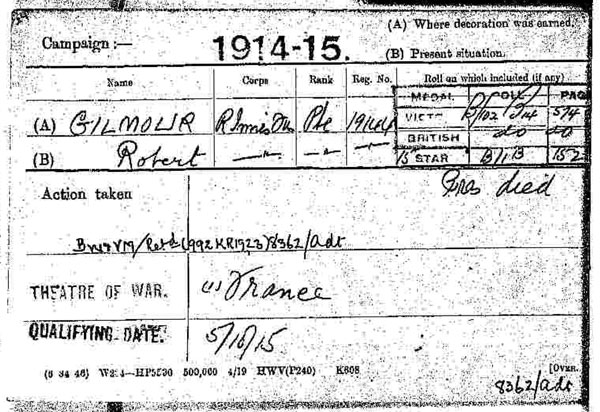 (A) Where decoration was earned.
Campaign :— 1914-15.
(B) Present situation.
Name Corps Rank Reg. No. Roll on which included (if any)
MEDAL ROLL PAGE
(A) GILMOUR R Innis Fus Pte VICTY B/102 B14 574
BRITISH do do
(B) Robert —"— —"— —"— 15 STAR B/1B 152
Action taken died
BW&VM/Retd(992KR1923)8362/Adt
THEATRE OF WAR. (1) France
QUALIFYING DATE. 5/10/15
(6 34 46) W2 4—HP5530 500,000 4/19 HWV(P240) K608 [OVER.
8362/adt